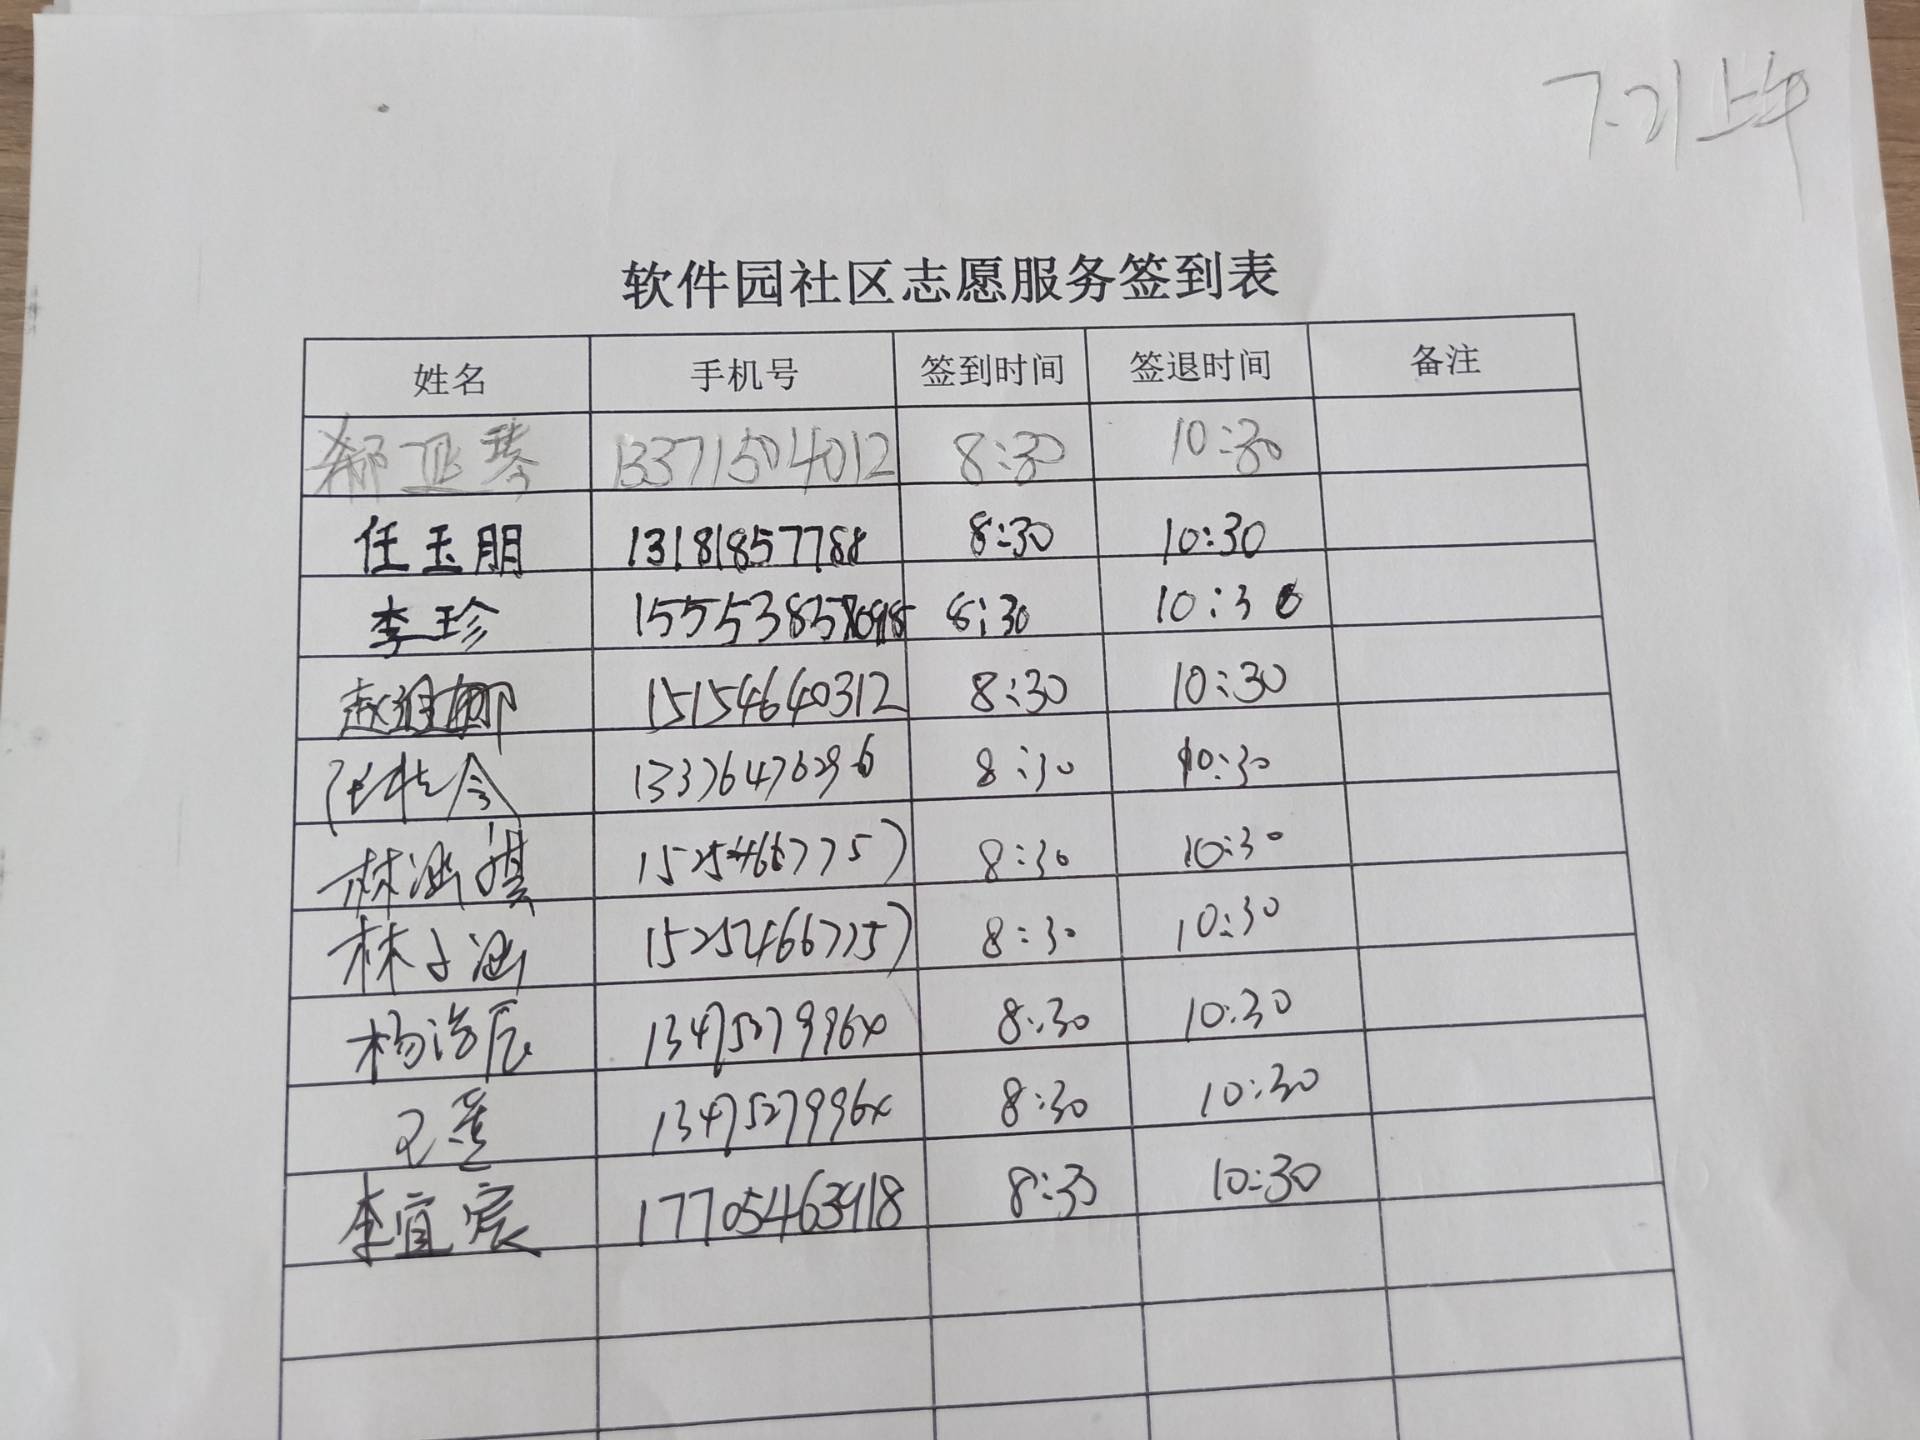 7.21上午
软件园社区志愿服务签到表
姓名 手机号 签到时间 签退时间 备注
郝亚琴 13371504012 8:30 10:30
任玉朋 13181857788 8:30 10:30
李珍 8:30 10:30
赵娜 15154640312 8:30 10:30
13376476296 8:30 10:30
林涵淇 15254667757 8:30 10:30
林子涵 152524667757 8:30 10:30
杨浩辰 8:30 10:30
王 8:30 10:30
李宜宸 17705463918 8:30 10:30